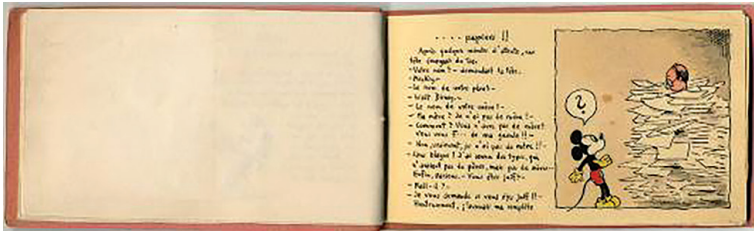 .... papiers !!
Après quelques minutes d'attente, une
tête émergea du tas.
- Votre nom ? - demandait la tête.
- Mickey -
- Le nom de votre père ? -
- Walt Disney. -
- Le nom de votre mère ? -
- Ma mère ? Je n'ai pas de mère ! -
- Comment ? Vous n'avez pas de mère ?
Vous vous f... de ma gueule !! -
- Non, vraiment, je n'ai pas de mère !! -
- Sans blague ! J'ai connu des types, qui
n'avaient pas de père, mais pas de mère...
Enfin, passons. - Vous êtes juif ? -
- Plaît-il ? -
- Je vous demande si vous êtes juif !! -
Honteusement, j'avouais ma complète
?